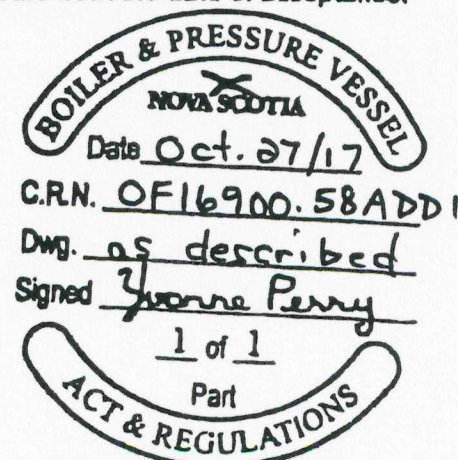 BOILER & PRESSURE VESSEL
NOVA SCOTIA
Date Oct. 27/17
C.R.N. OF16900.58ADD1
Dwg. as described
Signed Yvonne Perry
1 of 1
Part
ACT & REGULATIONS